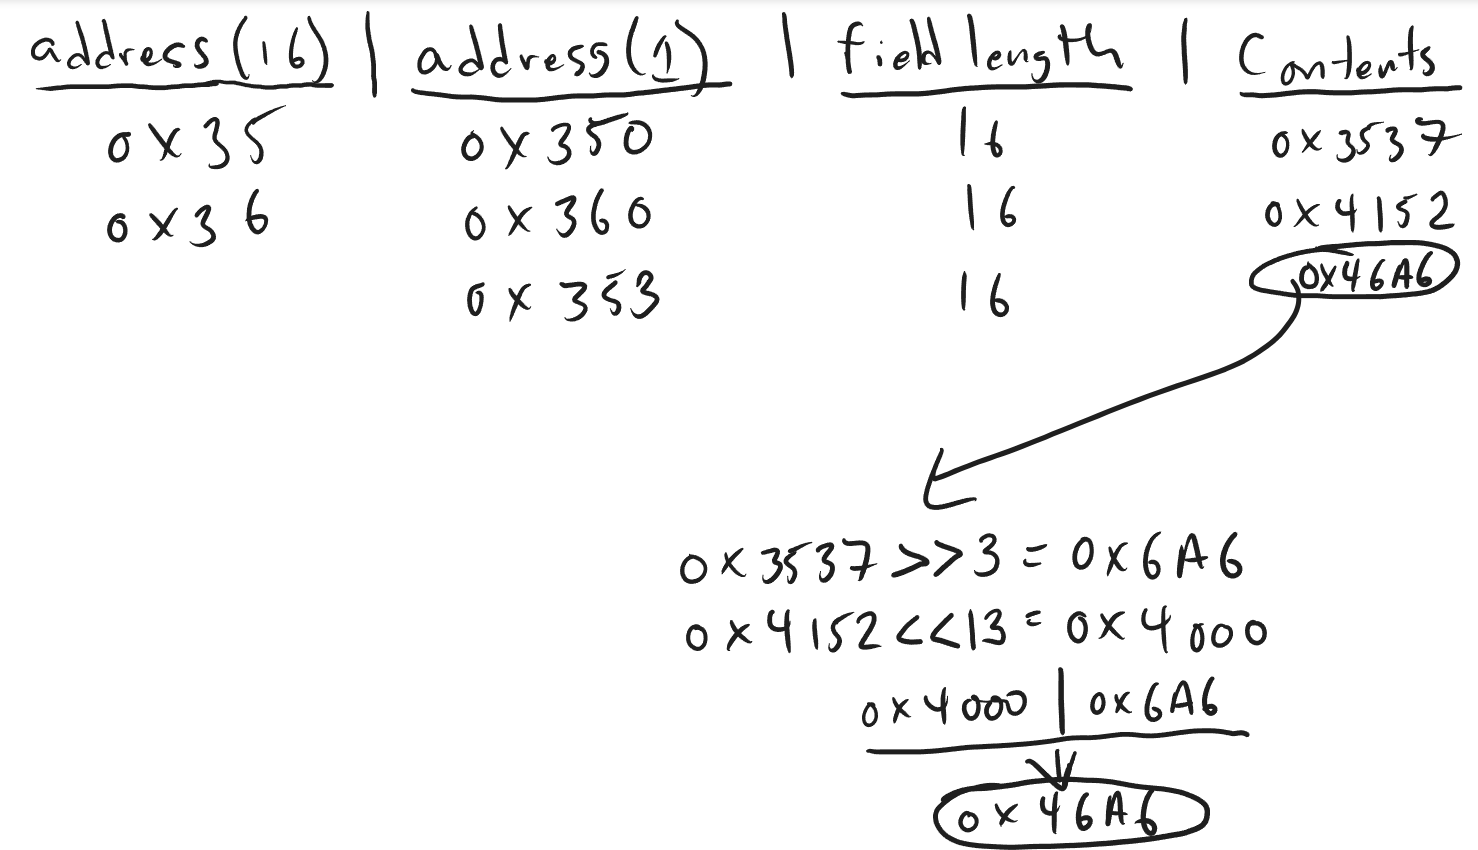 address(16) | address(1) | field length | Contents
0x35 0x350 16 0x3537
0x36 0x360 16 0x4152
0x353 16 0x46A6
0x3537 >> 3 = 0x6A6
0x4152 << 13 = 0x4000
0x4000 | 0x6A6
0x46A6